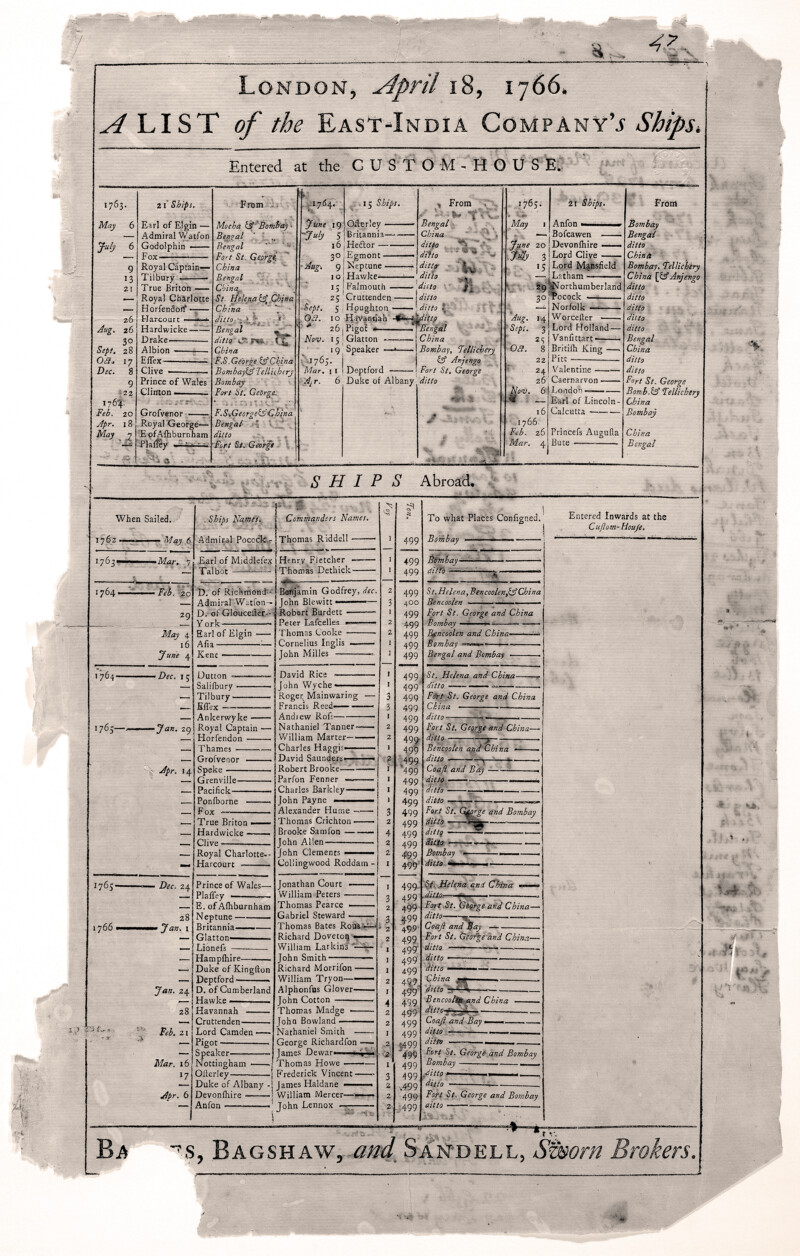 47
LONDON, April 18, 1766.
A LIST of the EAST-INDIA COMPANY's Ships.
Entered at the CUSTOM-HOUSE.
1763. 21 Ships. From
May 6 Earl of Elgin — Mocha & Bombay
— Admiral Watſon Bengal
July 6 Godolphin — Bengal
— Fox — Fort St. George
9 Royal Captain — China
13 Tilbury — Bengal
21 True Briton — China
— Royal Charlotte St. Helena & China
— Horſendon — China
26 Harcourt — ditto
Aug. 26 Hardwicke — Bengal
30 Drake — ditto
Sept. 28 Albion — China
Oct. 17 Eſſex — F.S. George & China
Dec. 8 Clive — Bombay & Tellichery
9 Prince of Wales Bombay
22 Clinton — Fort St. George
1764
Feb. 20 Groſvenor — F.S. George & China
Apr. 18 Royal George — Bengal
May 7 E of Aſhburnham ditto
— Plaſſey — Fort St. George
1764. 15 Ships. From
June 19 Oſterley — Bengal
July 5 Britannia — China
16 Hector — ditto
30 Egmont — ditto
Aug. 9 Neptune — ditto
10 Hawke — ditto
15 Falmouth — ditto
25 Cruttenden — ditto
Sept. 5 Houghton — ditto
Oct. 10 Havannah — ditto
26 Pigot — Bengal
Nov. 15 Glatton — China
19 Speaker — Bombay, Tellichery
1765. & Anjengo
Mar. 11 Deptford — Fort St. George
Apr. 6 Duke of Albany ditto
1765. 21 Ships. From
May 1 Anſon — Bombay
— Boſcawen — Bengal
June 20 Devonſhire — ditto
July 3 Lord Clive — China
15 Lord Mansfield Bombay, Tellichery
— Latham — China [& Anjengo
29 Northumberland ditto
30 Pocock — ditto
— Norfolk — ditto
Aug. 14 Worceſter — ditto
Sept. 3 Lord Holland — ditto
25 Vanſittart — Bengal
Oct. 8 Britiſh King — China
22 Pitt — ditto
24 Valentine — ditto
26 Caernarvon — Fort St. George
Nov. 6 London — Bomb. & Tellichery
— Earl of Lincoln - China
16 Calcutta — Bombay
1766
Feb. 26 Princeſs Auguſta China
Mar. 4 Bute — Bengal
SHIPS Abroad.
When Sailed. Ships Names. Commanders Names. Voy. Ton. To what Places Conſigned. Entered Inwards at the
Cuſtom-Houſe.
1762 — May 6 Admiral Pococke - Thomas Riddell — 1 499 Bombay —
1763 — Mar. 7 Earl of Middleſex Henry Fletcher — 1 499 Bombay —
— Talbot — Thomas Dethick — 1 499 ditto —
1764 — Feb. 20 D. of Richmond - Benjamin Godfrey, dec. 2 499 St. Helena, Bencoolen, & China
— Admiral Watſon - John Blewitt — 3 400 Bencoolen —
29 D. of Glouceſter - Robert Burdett — 1 499 Fort St. George and China
— York — Peter Laſcelles — 2 499 Bombay —
May 4 Earl of Elgin — Thomas Cooke — 2 499 Bencoolen and China —
16 Aſia — Cornelius Inglis — 1 499 Bombay —
June 4 Kent — John Milles — 1 499 Bengal and Bombay —
1764 — Dec. 15 Dutton — David Rice — 1 499 St. Helena and China —
— Saliſbury — John Wyche — 1 499 ditto —
— Tilbury — Roger Mainwaring — 3 499 Fort St. George and China
— Eſſex — Francis Reed — 3 499 China —
— Ankerwyke — Andrew Roſs — 1 499 ditto —
1765 — Jan. 29 Royal Captain — Nathaniel Tanner — 2 499 Fort St. George and China —
— Horſendon — William Marter — 2 499 ditto —
— Thames — Charles Haggis — 1 499 Bencoolen and China —
— Groſvenor — David Saunders — 2 499 ditto —
Apr. 14 Speke — Robert Brooke — 1 499 Coaſt and Bay —
— Grenville — Parſon Fenner — 1 499 ditto —
— Pacifick — Charles Barkley — 1 499 ditto —
— Ponſborne — John Payne — 1 499 ditto —
— Fox — Alexander Hume — 3 499 Fort St. George and Bombay
— True Briton — Thomas Crichton — 2 499 ditto —
— Hardwicke — Brooke Samſon — 4 499 ditto —
— Clive — John Allen — 2 499 ditto —
— Royal Charlotte - John Clements — 2 499 Bombay —
— Harcourt — Collingwood Roddam - 1 499 ditto —
1765 — Dec. 24 Prince of Wales — Jonathan Court — 1 499 St. Helena and China —
— Plaſſey — William Peters — 3 499 ditto —
— E. of Aſhburnham Thomas Pearce — 2 499 Fort St. George and China —
28 Neptune — Gabriel Steward — 3 499 ditto —
1766 — Jan. 1 Britannia — Thomas Bates Rous — 2 499 Coaſt and Bay —
— Glatton — Richard Doveton — 2 499 Fort St. George and China —
— Lioneſs — William Larkins — 1 499 ditto —
— Hampſhire — John Smith — 1 499 ditto —
— Duke of Kingſton Richard Morriſon — 1 499 ditto —
— Deptford — William Tryon — 2 499 China —
Jan. 24 D. of Cumberland Alphonſus Glover — 1 499 ditto —
— Hawke — John Cotton — 4 499 Bencoolen and China —
28 Havannah — Thomas Madge — 2 499 ditto —
— Cruttenden — John Bowland — 2 499 Coaſt and Bay —
Feb. 21 Lord Camden — Nathaniel Smith — 1 499 ditto —
— Pigot — George Richardſon — 2 499 ditto —
— Speaker — James Dewar — 2 499 Fort St. George and Bombay
Mar. 16 Nottingham — Thomas Howe — 1 499 Bombay —
17 Oſterley — Frederick Vincent — 3 499 ditto —
— Duke of Albany - James Haldane — 2 499 ditto —
Apr. 6 Devonſhire — William Mercer — 2 499 Fort St. George and Bombay
— Anſon — John Lennox — 2 499 ditto —
BAGSHAW, and SANDELL, Sworn Brokers.